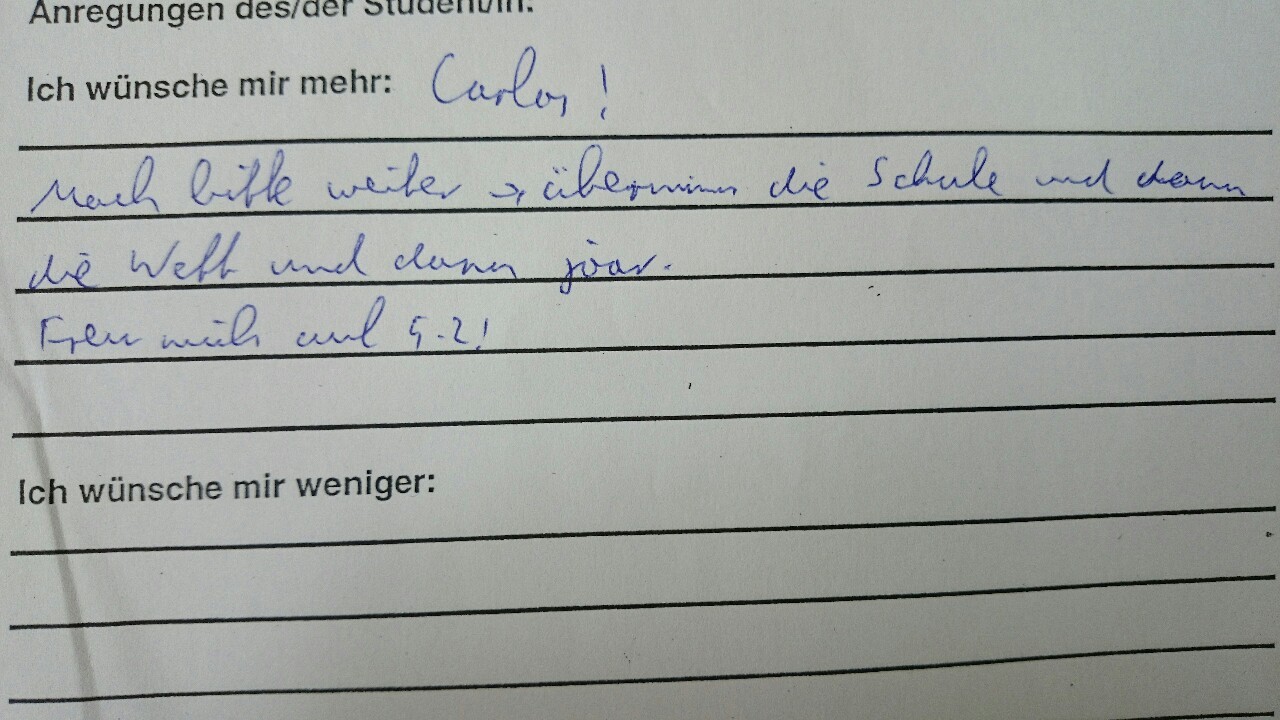 Anregungen des/der Student/in:
Ich wünsche mir mehr: Carlos!
Mach bitte weiter → übernimm die Schule und dann
die Welt und dann joar.
Freu mich auf 5.2!
Ich wünsche mir weniger: